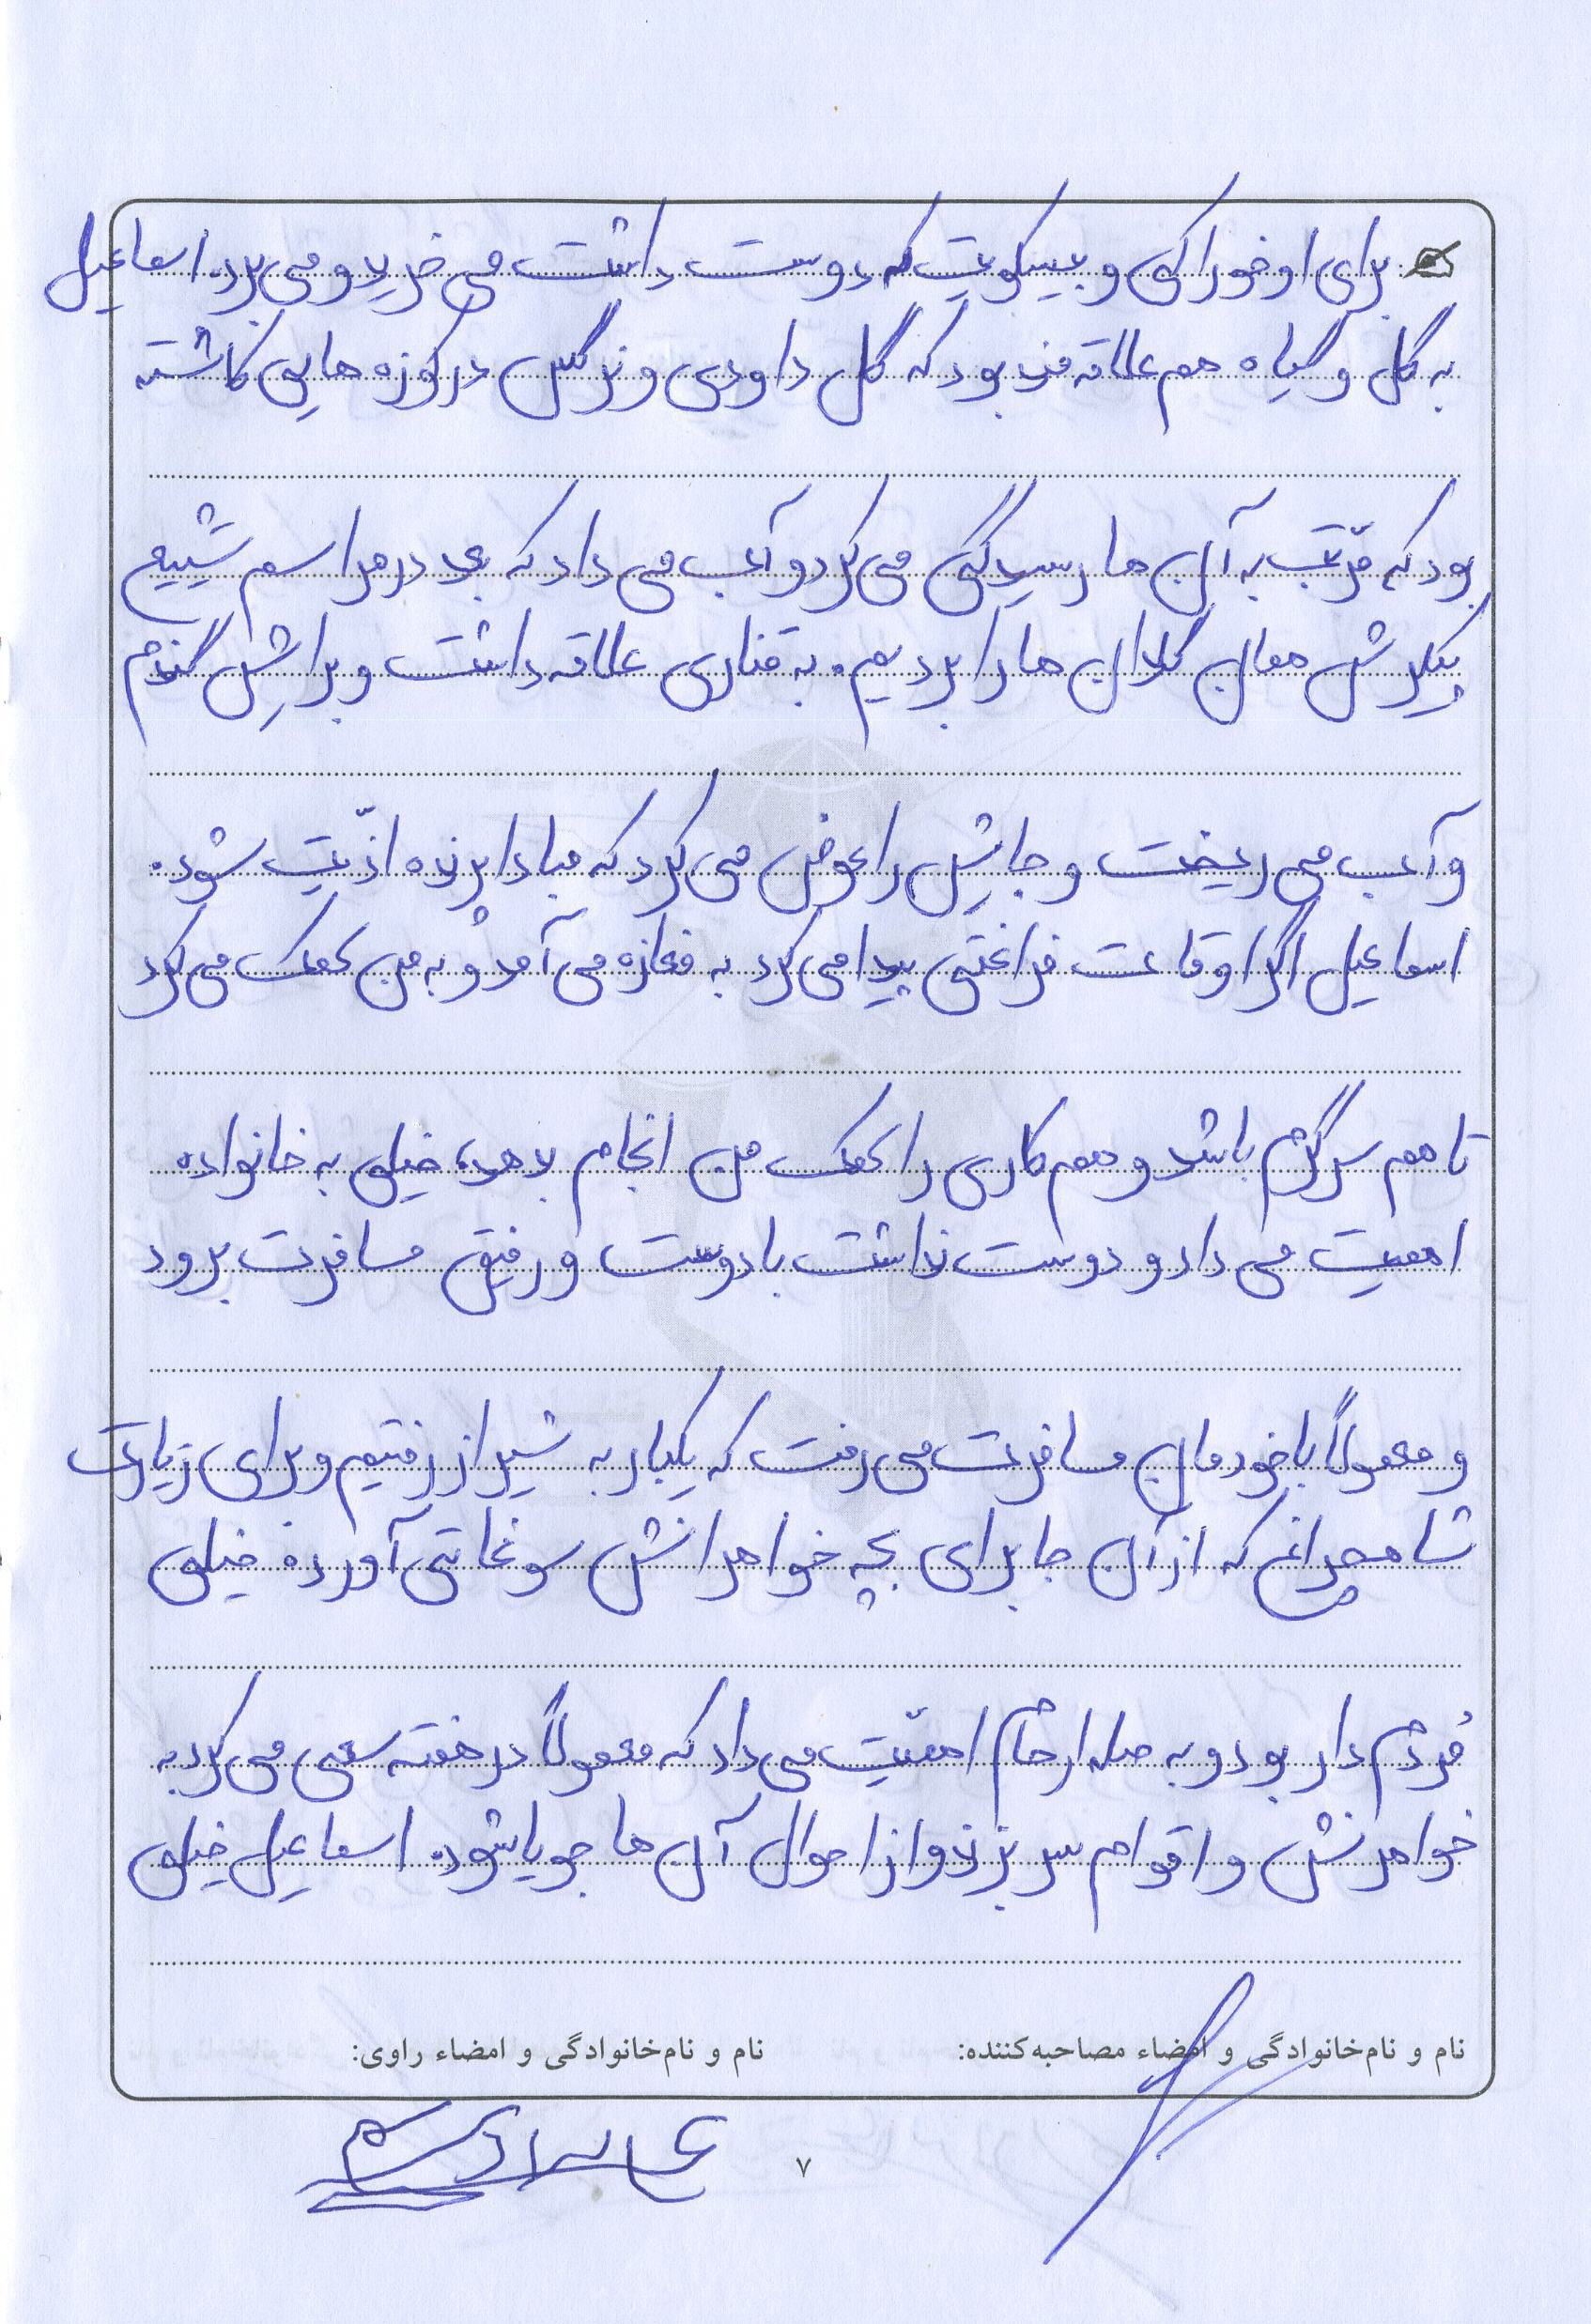 برای او خوراکی و بیسکویت که دوست داشت می خرید و می برد. اسماعیل
به گل و گیاه هم علاقه مند بود که گل داودی و نرگس در کوزه هایی کاشته
بود که مرّتب به آن ها رسیدگی می کرد و آب می داد که بعد در مراسم تشییع
پیکرش همان گلدان ها را بردیم. به قناری علاقه داشت و براش گندم
و آب می ریخت و جایش را عوض می کرد که مبادا پرنده اذّیت شود.
اسماعیل اگر اوقات فراغتی پیدا می کرد به مغازه می آمد و به من کمک می کرد
تا هم سرگرم باشد و هم کاری را کمک من انجام بدهد، خیلی به خانواده
اهمیت می داد و دوست نداشت با دوست و رفیق مسافرت برود
و معمولاً با خودمان مسافرت می رفت که یکبار به شیراز رفتیم و برای زیارت
شاهچراغ که از آن جا برای بچه خواهرانش سوغاتی آورده خیلی
مُردم دار بود و به صله ارحام اهمّیت می داد که معمولاً در هفته سعی می کرد به
خواهرنش و اقوام سر بزند و از احوال آن ها جویا شود. اسماعیل خیلی
نام و نام‌خانوادگی و امضاء مصاحبه‌کننده: نام و نام‌خانوادگی و امضاء راوی:
۷